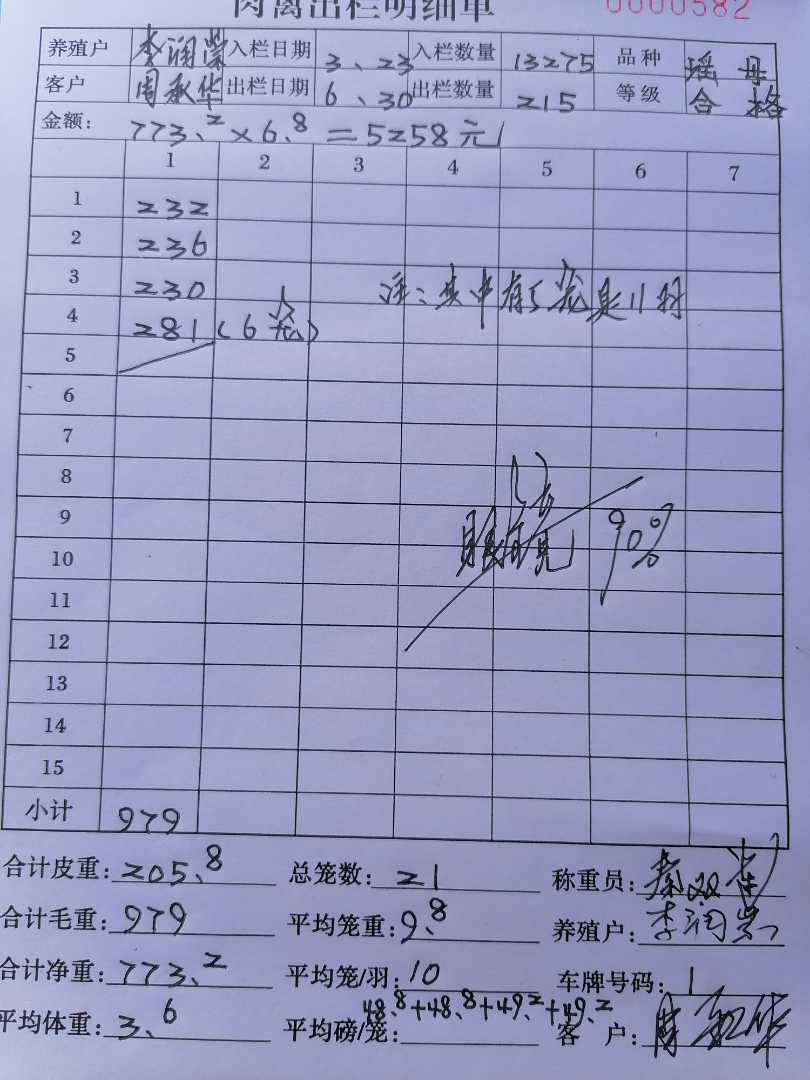 肉禽出栏明细单 0000582
养殖户 李润崇 入栏日期 3、23 入栏数量 13275 品种 瑶母
客户 周承华 出栏日期 6、30 出栏数量 215 等级 合格
金额: 773.2×6.8=5258元
1 2 3 4 5 6 7
1 232
2 236
3 230
4 281(6笼)
5
6
7
8
9
10 90%
11
12
13
14
15
小计 979
合计皮重: 205.8 总笼数: 21 称重员:
合计毛重: 979 平均笼重: 9.8 养殖户: 李润崇
合计净重: 773.2 平均笼/羽: 10 车牌号码:
平均体重: 3.6 平均磅/笼: 48.8+48.8+49.2+49.2 客户: 周承华
注:其中有1笼是11羽